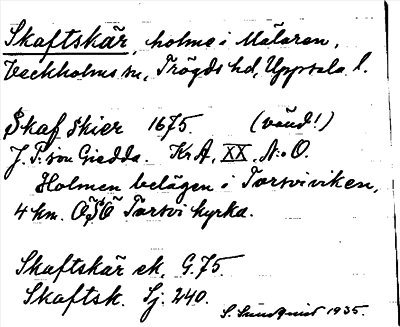 Skaftskär, holme i Mälaren,
Veckholms sn, Trögds hd, Uppsala l.
Skaf Skier 1675. (vänd!)
J. P:son Giedda. KrA, XX, N:o O.
Holmen belägen i Torsviviken,
4 km. OSO Torsvi kyrka.
Skaftskär ek, G. 75.
Skaftsk. Sj. 240.
S. Sundquist 1935.